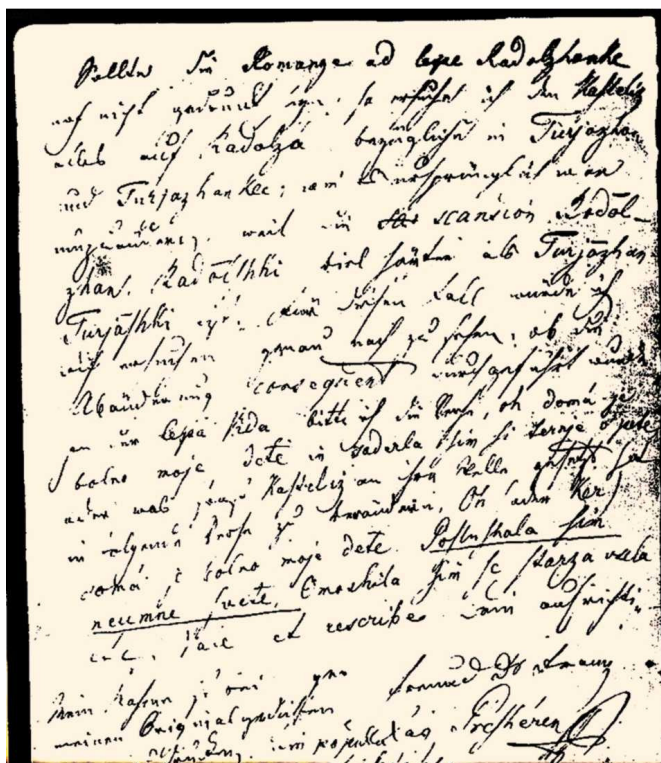 Sollte die Romanze od lepe Radolzhanke
noch nicht gedruckt seyn, so ersuche ich den Kasteliz
alles auf Radolza bezügliche in Turjazhan
und Turjazhankee; wie es ursprünglich war
umzuändern, weil die scansion Rodōl-
zhan, Radōlshki viel härter als Turjāzhan
Turjāshki Für diesen Fall würde ich
auch ersuchen genau nach zu sehen, ob die
Abänderung consequent durchgeführt wurde
In der lepa Vida bitte ich die Verse, oh domá je
bolno moje dete in saderla sim si ternje v pete
oder was Kasteliz an ihre Stelle gesetzt hat
in folgende Verse zu verändern, Oh Ker
domá je bolno moje dete. Poslushala sim
neumne svete, Omoshila sim se starza vsela
etc. Vale et rescribe Dein aufrichti-
ger Freund Dr Franz
Preshéren
Mein
meinen Original gedichten